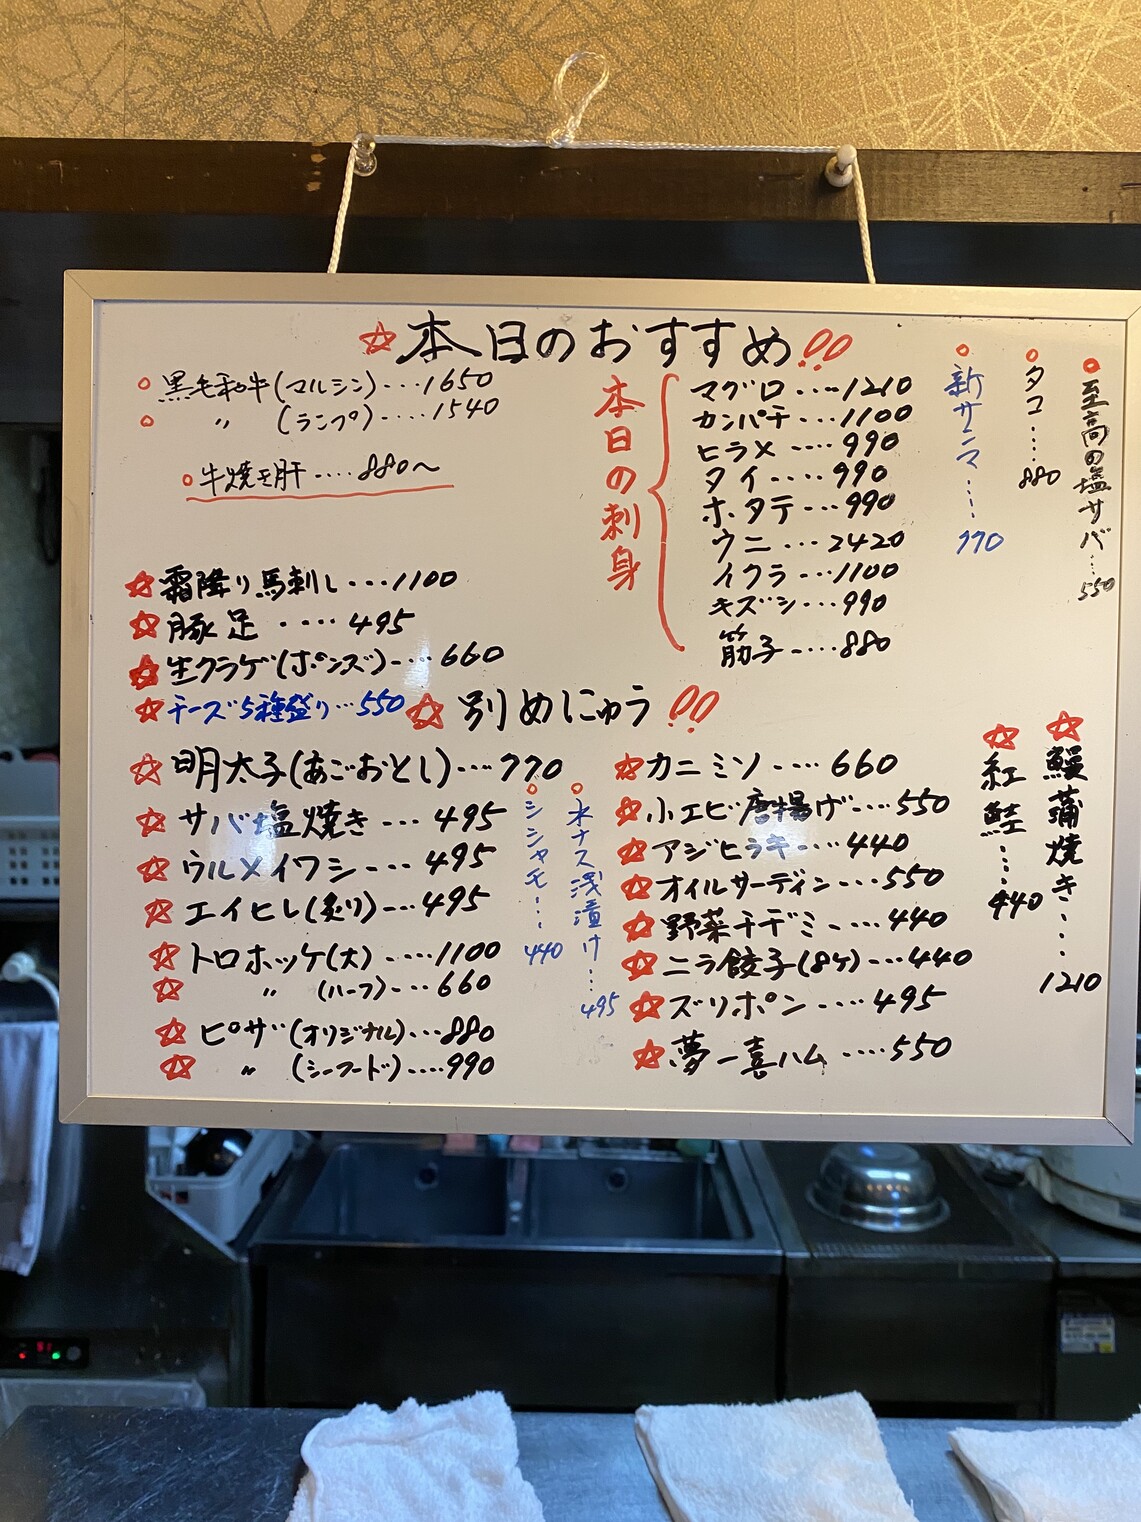 ☆本日のおすすめ!!
○黒毛和牛(マルシン)....1650
○ 〃 (ランプ).....1540
○牛焼き肝....880〜
☆霜降り馬刺し...1100
☆豚足....495
☆生クラゲ(ポンズ)....660
☆チーズ5種盛り...550
本日の刺身
マグロ....1210
カンパチ...1100
ヒラメ....990
タイ....990
ホタテ...990
ウニ...2420
イクラ...1100
キズシ...990
筋子....880
○新サンマ....770
○タコ....880
○至高の塩サバ...550
☆別めにゅう!!
☆明太子(あごおとし)...770
☆サバ塩焼き...495
☆ウルメイワシ...495
☆エイヒレ(炙り)...495
☆トロホッケ(大)....1100
☆ 〃 (ハーフ)....660
☆ピザ(オリジナル)...880
☆ 〃 (シーフード)....990
○シシャモ...440
○水ナス浅漬け...495
☆カニミソ....660
☆小エビ唐揚げ....550
☆アジヒラキ....440
☆オイルサーディン...550
☆野菜チヂミ....440
☆ニラ餃子(8ケ)...440
☆ズリポン....495
☆夢一喜ハム....550
☆紅鮭....440
☆鰻蒲焼き....1210